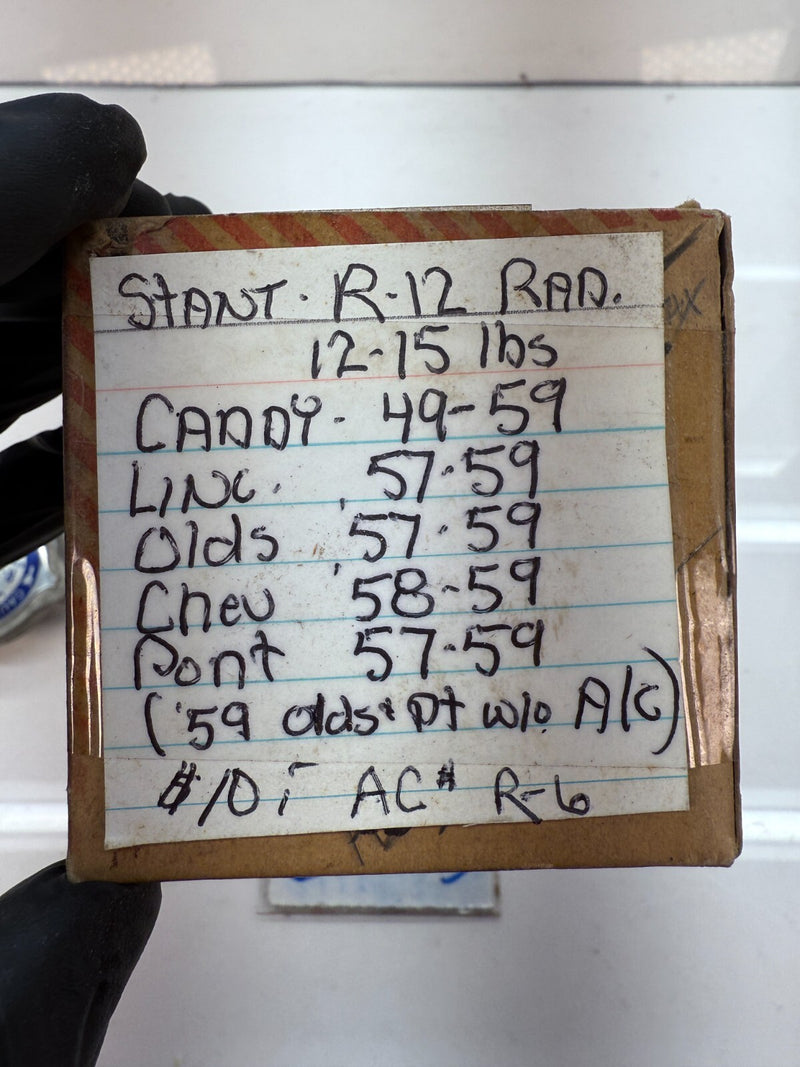 STANT. R-12 RAD.
12-15 lbs
CADDY- 49-59
LINC. '57-59
Olds '57-59
Chev '58-59
Pont 57-59
('59 olds & pt w/o A/C)
$10 AC# R-6